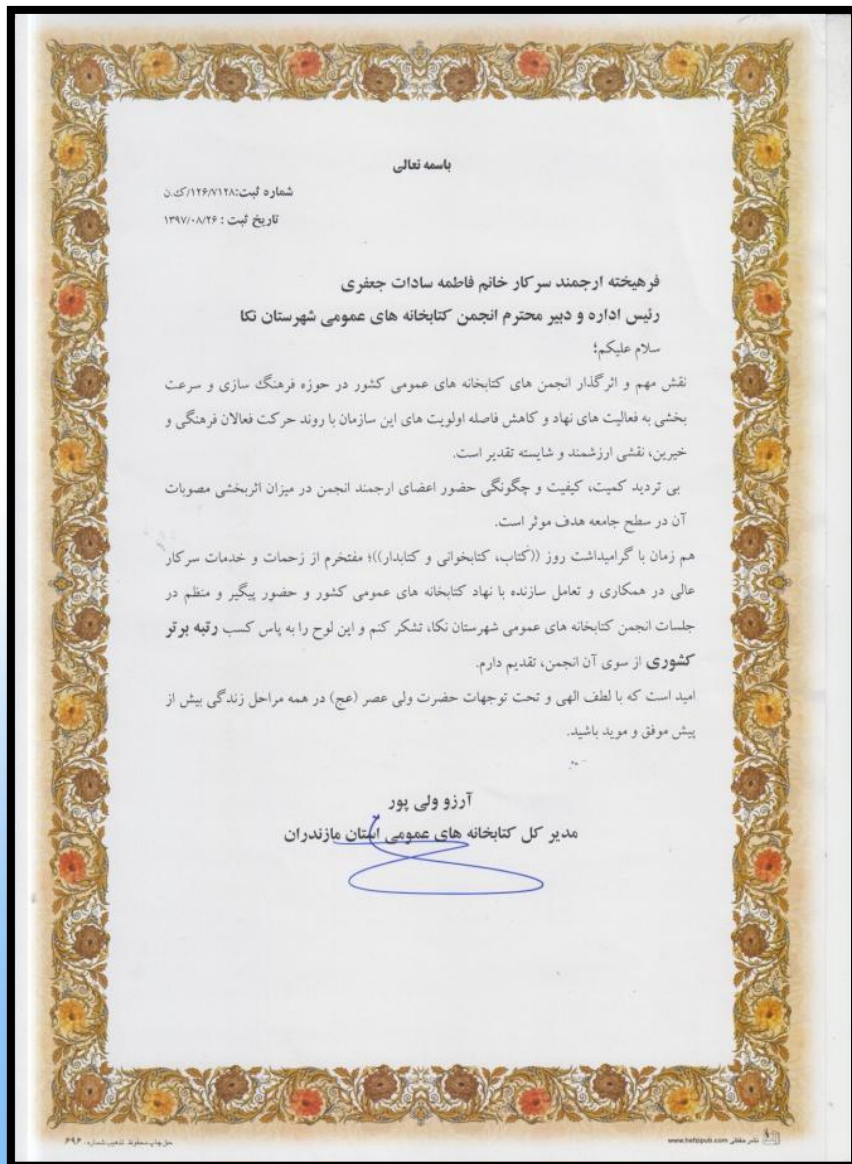 باسمه تعالی
شماره ثبت:۱۲۶/۷۱۲۸/ک.ن
تاریخ ثبت : ۱۳۹۷/۰۸/۲۶
فرهیخته ارجمند سرکار خانم فاطمه سادات جعفری
رئیس اداره و دبیر محترم انجمن کتابخانه های عمومی شهرستان نکا
سلام علیکم؛
نقش مهم و اثرگذار انجمن های کتابخانه های عمومی کشور در حوزه فرهنگ سازی و سرعت
بخشی به فعالیت های نهاد و کاهش فاصله اولویت های این سازمان با روند حرکت فعالان فرهنگی و
خیرین، نقشی ارزشمند و شایسته تقدیر است.
بی تردید کمیت، کیفیت و چگونگی حضور اعضای ارجمند انجمن در میزان اثربخشی مصوبات
آن در سطح جامعه هدف موثر است.
هم زمان با گرامیداشت روز ((کتاب، کتابخوانی و کتابدار))؛ مفتخرم از زحمات و خدمات سرکار
عالی در همکاری و تعامل سازنده با نهاد کتابخانه های عمومی کشور و حضور پیگیر و منظم در
جلسات انجمن کتابخانه های عمومی شهرستان نکا، تشکر کنم و این لوح را به پاس کسب رتبه برتر
کشوری از سوی آن انجمن، تقدیم دارم.
امید است که با لطف الهی و تحت توجهات حضرت ولی عصر (عج) در همه مراحل زندگی بیش از
پیش موفق و موید باشید.
آرزو ولی پور
مدیر کل کتابخانه های عمومی استان مازندران
حق چاپ محفوظ. تذهیب شماره: ۶۹۶
www.hefzipub.com نشر حفظی